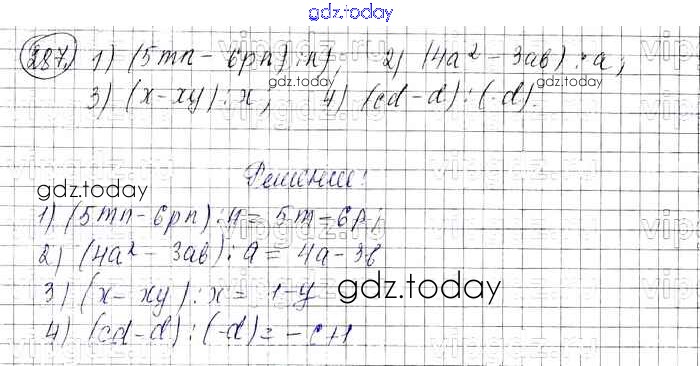 gdz.today
287. 1) (5mn - 6pn) : n; 2) (4a² - 3ab) : a;
gdz.today gdz.today
3) (x - xy) : x, 4) (cd - d) : (-d).
Решение:
gdz.today
1) (5mn - 6pn) : n = 5m - 6p;
2) (4a² - 3ab) : a = 4a - 3b
3) (x - xy) : x = 1 - y
gdz.today
4) (cd - d) : (-d) = -c + 1